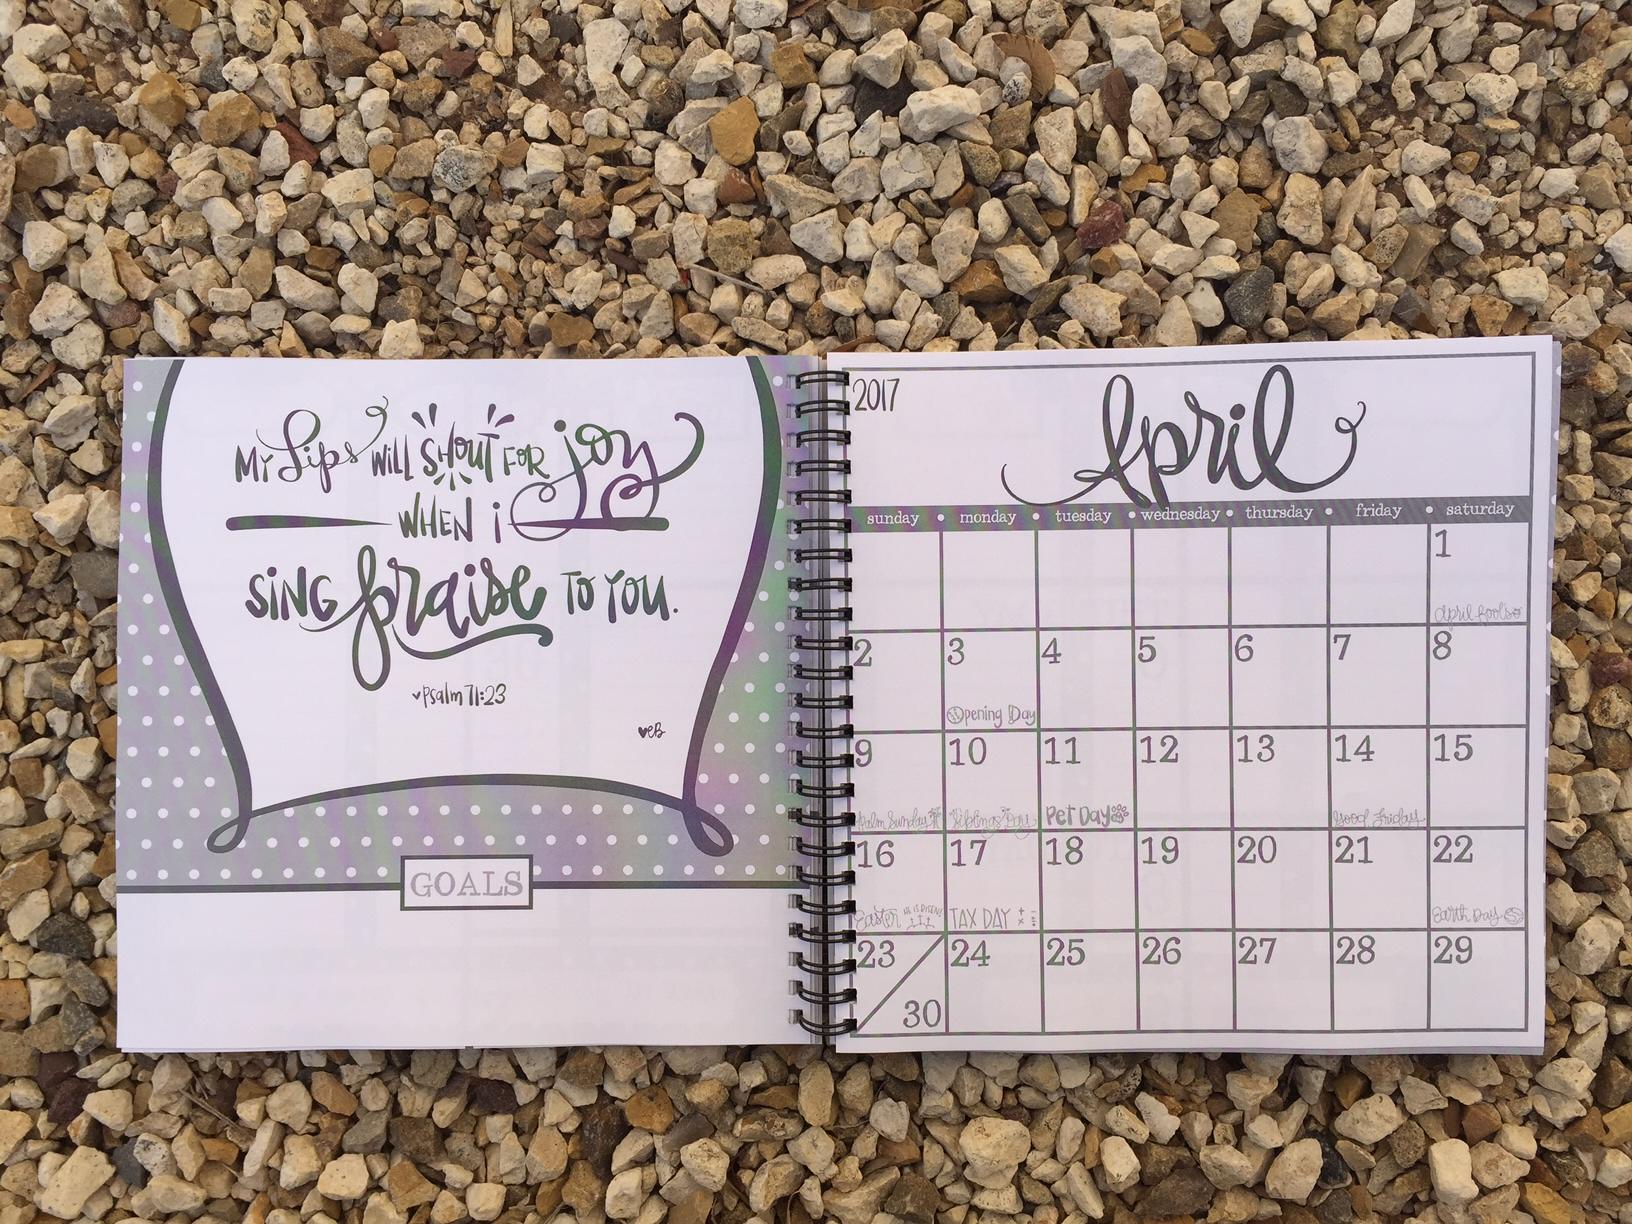 My Lips will SHOUT FOR joy
WHEN i
SING praise TO YOU.
psalm 71:23
eB
GOALS
2017
April
sunday • monday • tuesday • wednesday • thursday • friday • saturday
1
April Fools
2 3 4 5 6 7 8
Opening Day
9 10 11 12 13 14 15
Palm Sunday Siblings Day Pet Day Good Friday
16 17 18 19 20 21 22
Easter HE IS RISEN! TAX DAY Earth Day
23 24 25 26 27 28 29
30